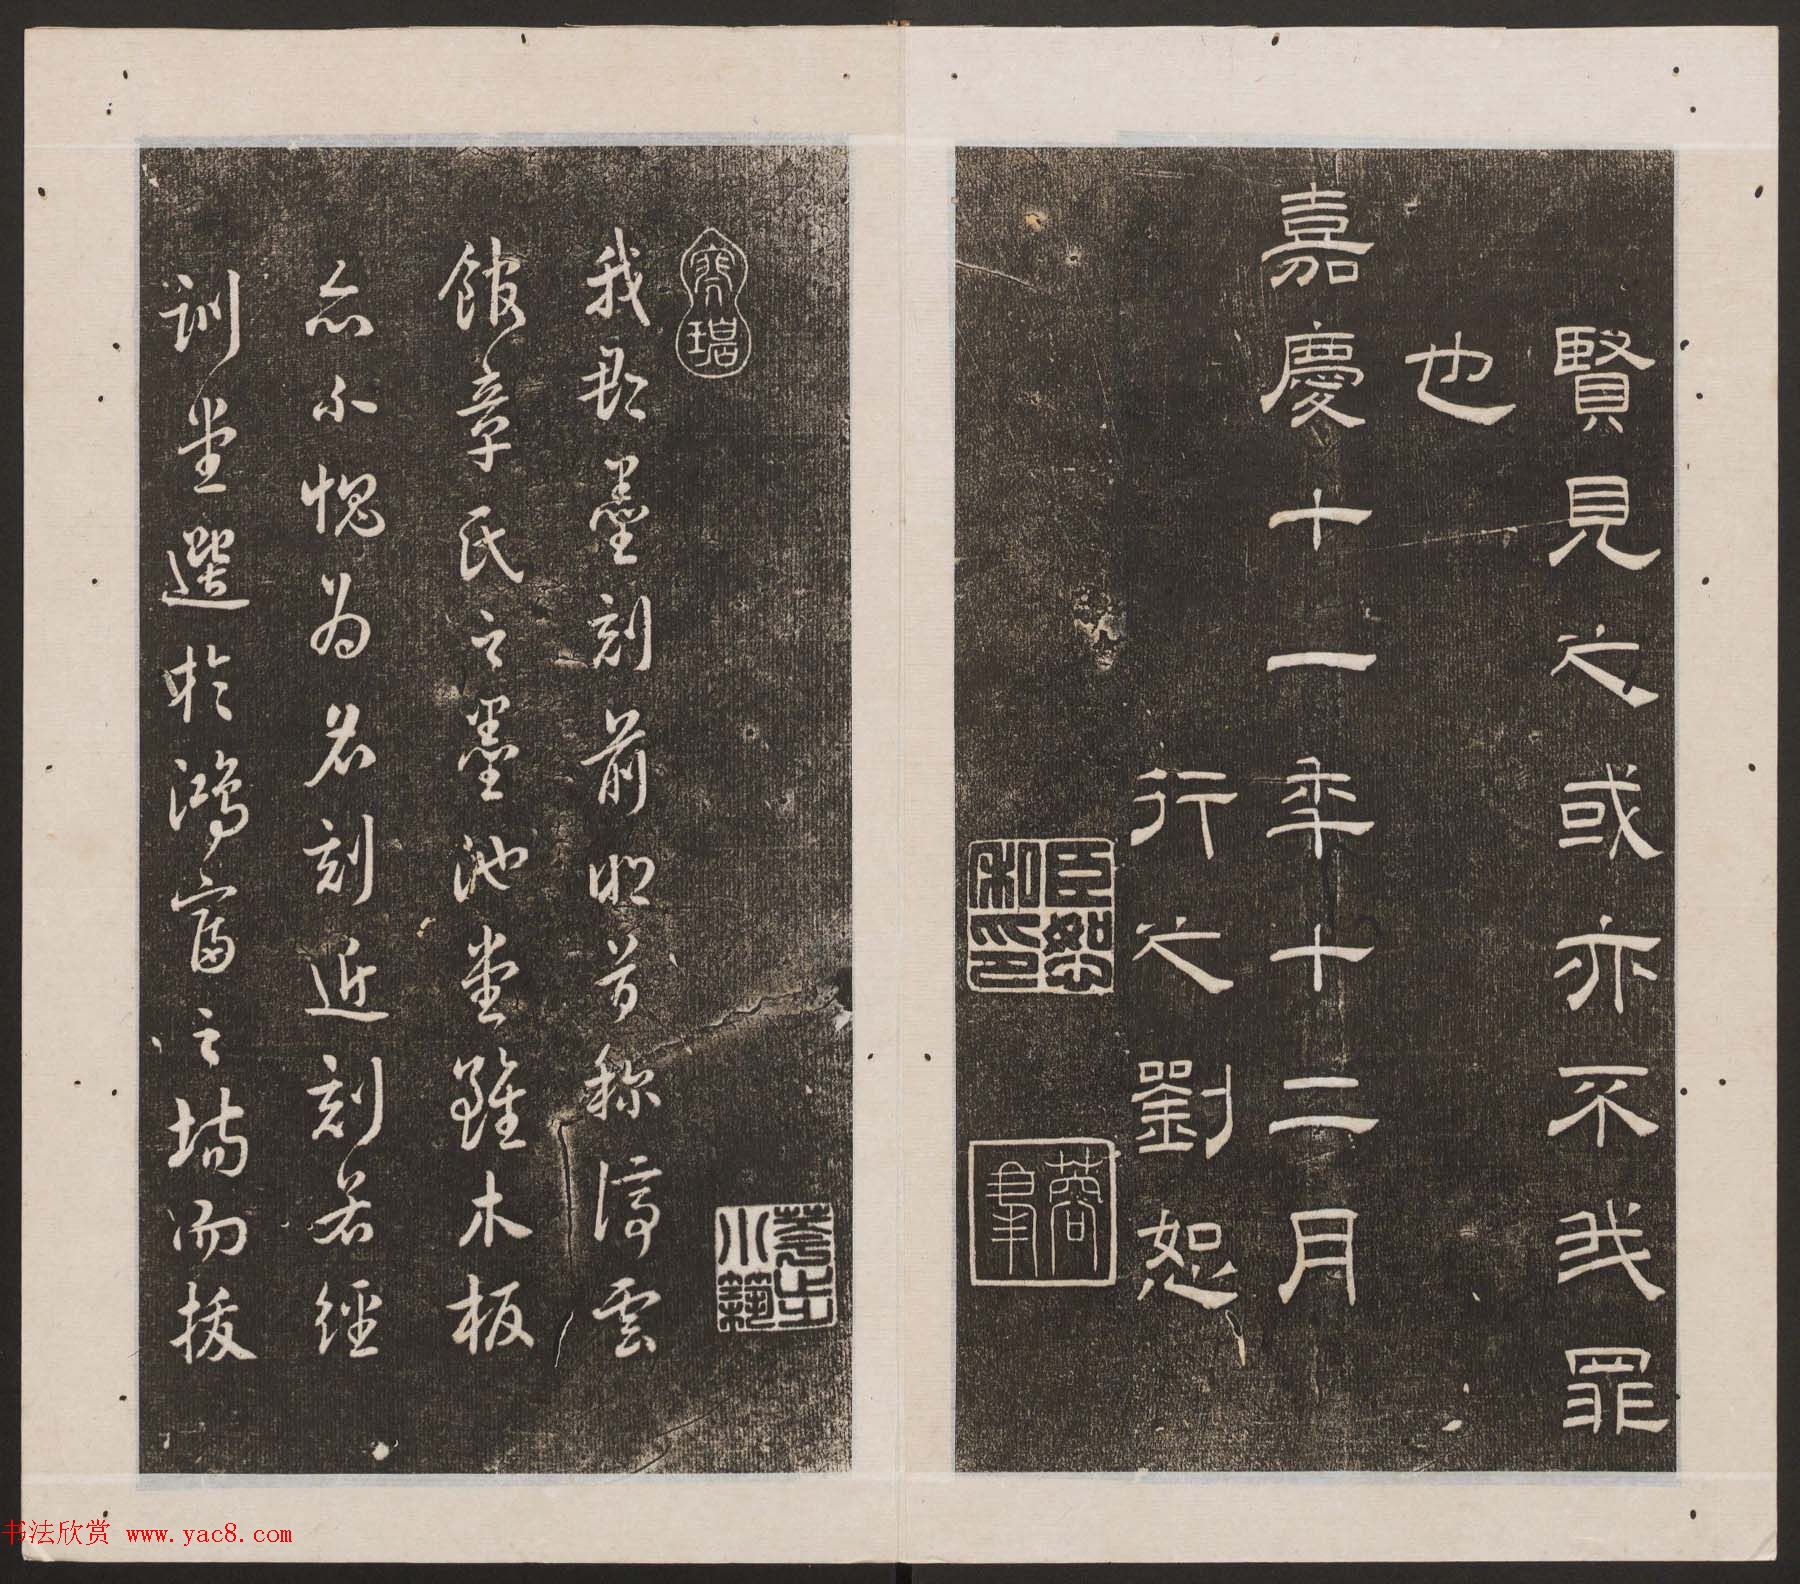 賢見之或亦不我罪
也
嘉慶十一年十二月
行之劉恕
臣恕私印
蓉峯
寒碧
花步小築
我郡墨刻前明首称停雲
館章氏之墨池堂雖木板
亦不愧為名刻近刻若經
訓堂選於鴻富之場而拔
书法欣赏 www.yac8.com